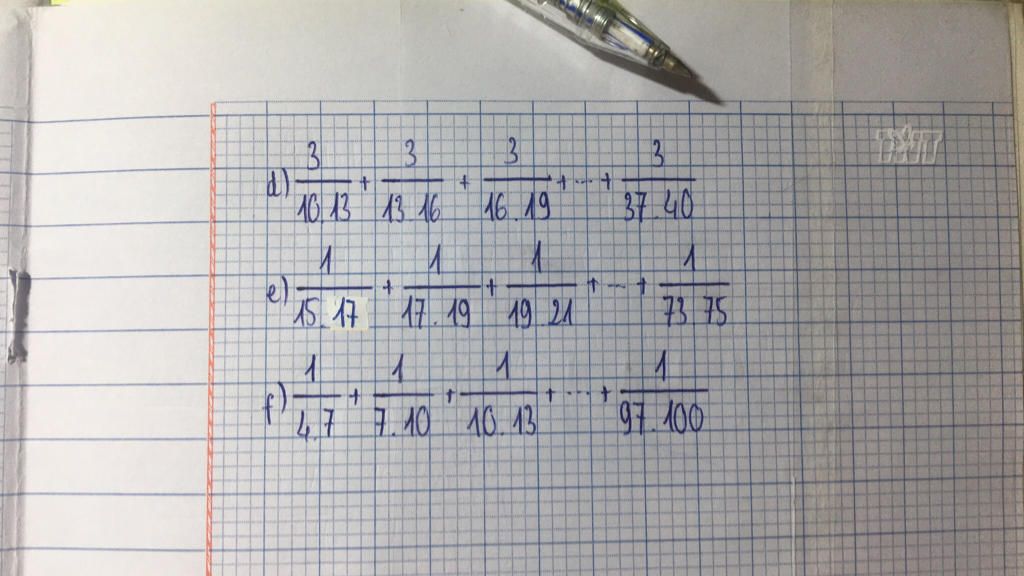 d) 3/10.13 + 3/13.16 + 3/16.19 + ... + 3/37.40
e) 1/15.17 + 1/17.19 + 1/19.21 + ... + 1/73.75
f) 1/4.7 + 1/7.10 + 1/10.13 + ... + 1/97.100